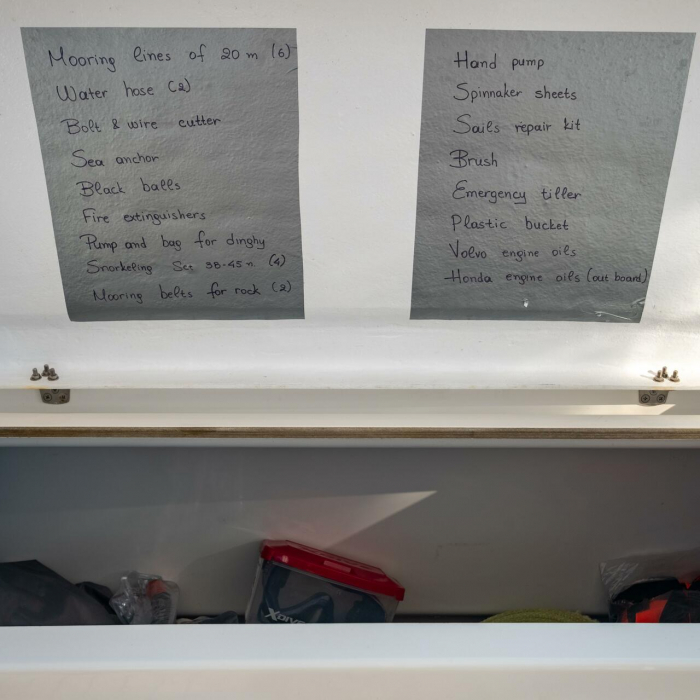 Mooring lines of 20 m (6)
Water hose (2)
Bolt & wire cutter
Sea anchor
Black balls
Fire extinguishers
Pump and bag for dinghy
Snorkeling 38-45 (4)
Mooring belts for rock (2)
Hand pump
Spinnaker sheets
Sails repair kit
Brush
Emergency tiller
Plastic bucket
Volvo engine oils
Honda engine oils (out board)